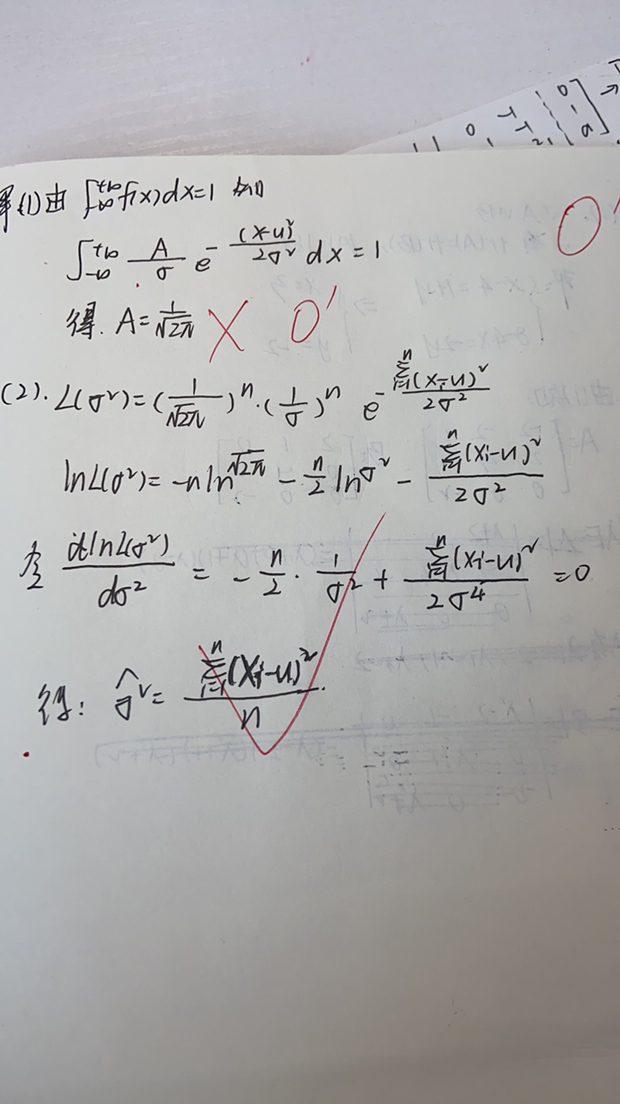 解(1)由 ∫_{-∞}^{+∞} f(x)dx=1 知
∫_{-∞}^{+∞} \frac{A}{σ} e^{-\frac{(x-u)^2}{2σ^2}} dx=1
得. A=\frac{1}{\sqrt{2π}} X 0'
(2). L(σ^2)=(\frac{1}{\sqrt{2π}})^n·(\frac{1}{σ})^n e^{-\frac{\sum_{i=1}^{n}(x_i-u)^2}{2σ^2}}
lnL(σ^2)=-n ln\sqrt{2π} - \frac{n}{2} lnσ^2 - \frac{\sum_{i=1}^{n}(x_i-u)^2}{2σ^2}
令 \frac{d lnL(σ^2)}{dσ^2} = -\frac{n}{2}·\frac{1}{σ^2} + \frac{\sum_{i=1}^{n}(x_i-u)^2}{2σ^4} =0
得: \hat{σ}^2= \frac{\sum_{i=1}^{n}(X_i-u)^2}{n}